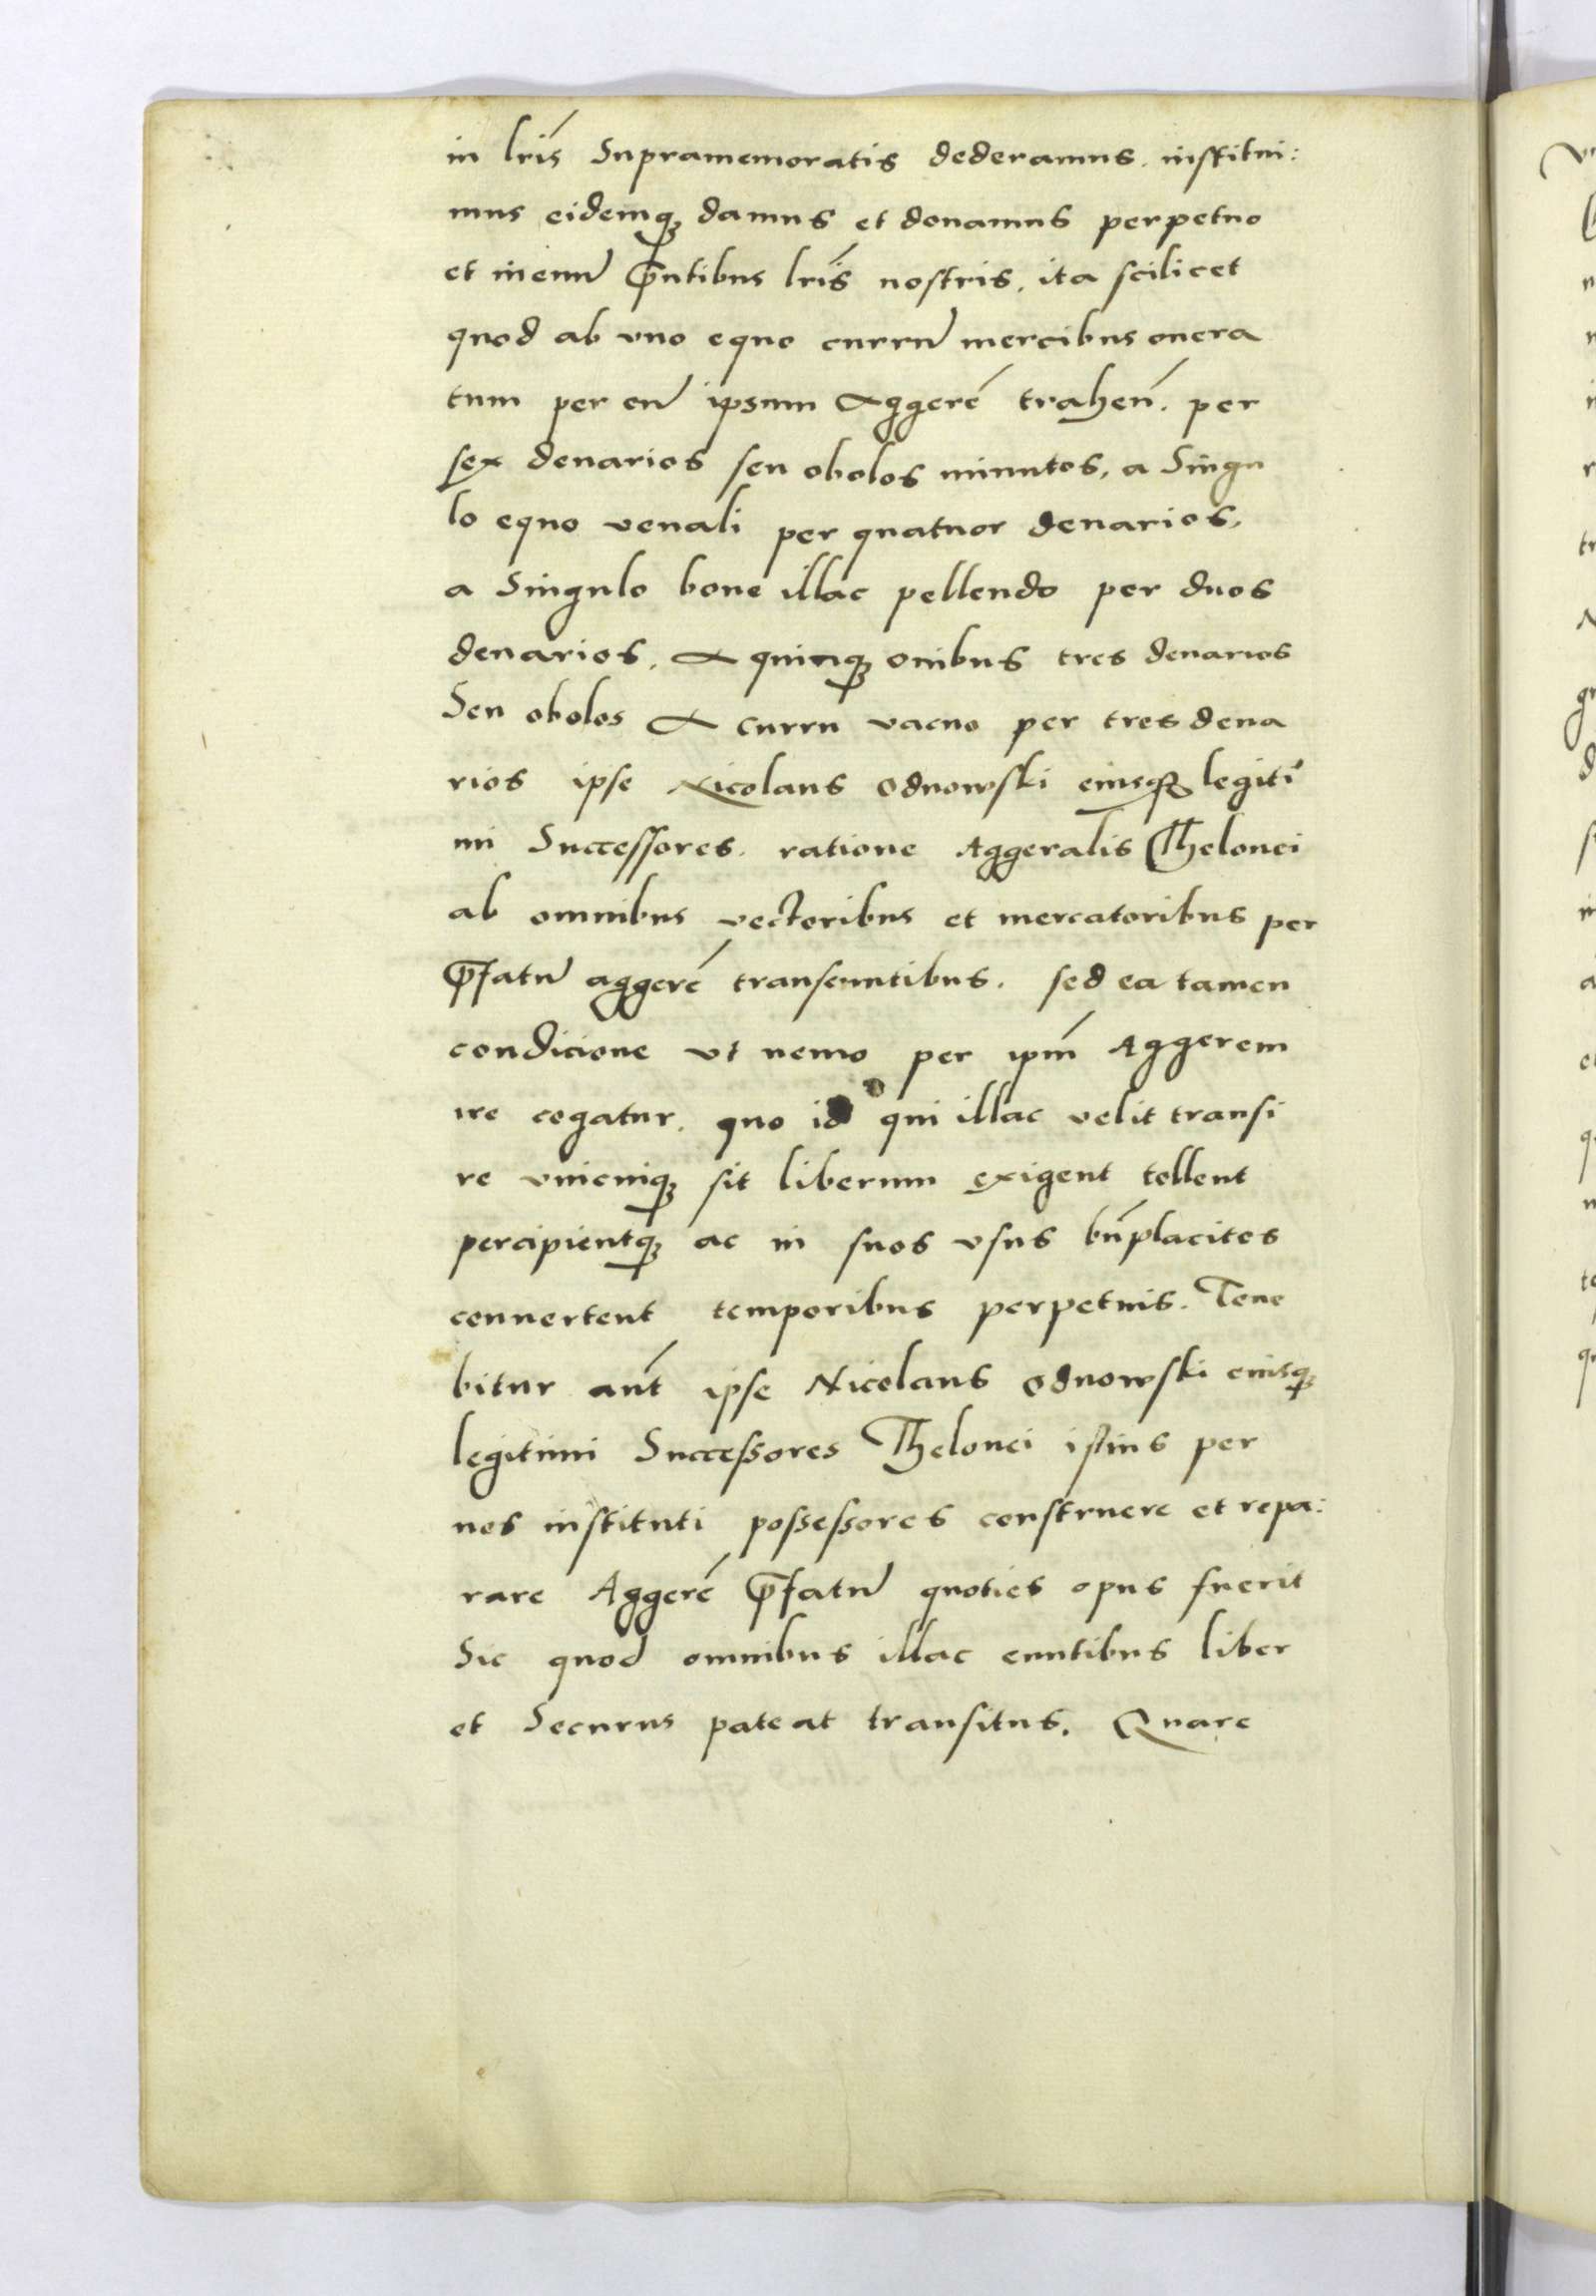 in lrīs Supramemoratis dederamus. institui:
mus eidemq̃ damus et donamus perpetuo
et in euū p̄ntibus lrīs nostris, ita scilicet
quod ab vno equo currū mercibus onera
tum per eū ipsum Aggerē trahen̄. per
sex denarios seu obolos minutos, a Singu
lo equo venali per quatuor denarios,
a Singulo boue illac pellendo per duos
denarios, A quinq̃ ouibus tres denarios
Seu obolos A curru vacuo per tres dena
rios ipse Nicolaus Odnowski eiusq̃ legiti
mi Successores. ratione Aggeralis Thelonei
ab omnibus vectoribus et mercatoribus per
p̄fatū aggerē transeuntibus. sed ea tamen
condicione vt nemo per ipm̄ Aggerem
ire cogatur. quo id qui illac velit transi
re vnicuiq̃ sit liberum exigent tollent
percipientq̃ ac in suos vsus bn̄placitos
conuertent temporibus perpetuis. Tene
bitur aut̄ ipse Nicolaus Odnowski eiusq̃
legitimi Successores Thelonei istius per
nos instituti possessores construere et repa:
rare Aggerē p̄fatū quoties opus fuerit
Sic quod omnibus illac euntibus liber
et Securus pateat transitus. Quare